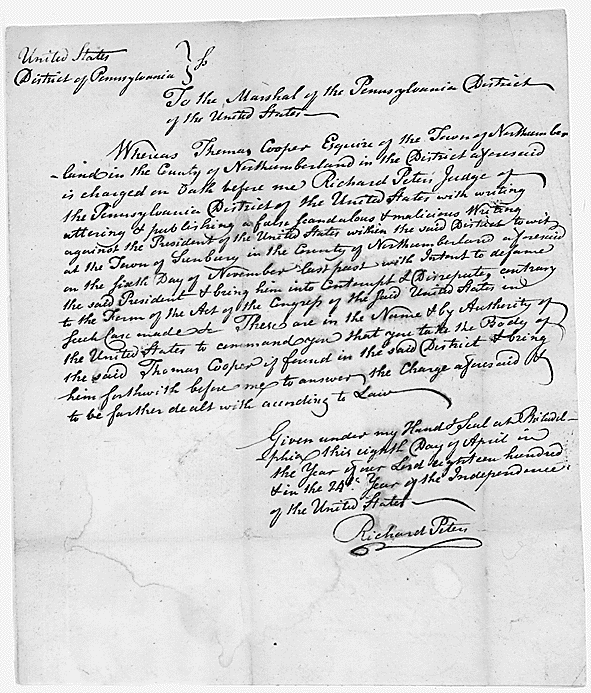 United States
District of Pennsylvania } ss
To the Marshal of the Pennsylvania District
of the United States
Whereas Thomas Cooper Esquire of the Town of Northumber
-land in the County of Northumberland in the District aforesaid
is charged on Oath before me Richard Peters Judge of
the Pennsylvania District of the United States with writing
uttering & publishing a false scandalous & malicious Writing
against the President of the United States within the said District to wit
at the Town of Sunbury in the County of Northumberland aforesaid
on the sixth Day of November last past with Intent to defame
the said President & bring him into Contempt & Disrepute, contrary
to the Form of the Act of the Congress of the said United States in
such Case made &c These are in the Name & by Authority of
the United States to command you that you take the Body of
the said Thomas Cooper if found in the said District & bring
him forthwith before me to answer the Charge aforesaid &
to be farther dealt with acording to Law
Given under my Hand & Seal at Philadel-
phia this eighth Day of April in
the Year of our Lord eighteen hundred
& in the 24th Year of the Independence
of the United States
Richard Peters